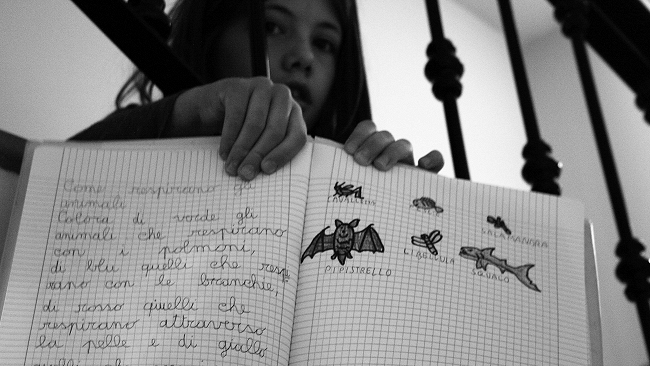 Come respirano gli
animali
Colora di verde gli
animali che respirano
con i polmoni,
di blu quelli che resp
irano con le branchie,
di rosso quelli che
respirano attraverso
la pelle e di giallo
quelli che
PIPISTRELLO
LIBELLULA
SALAMANDRA
SQUALO